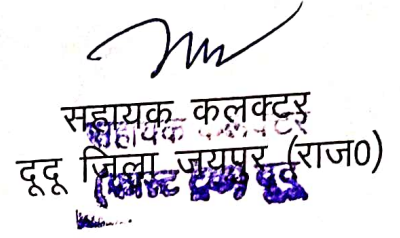 सहायक कलक्टर
दूदू जिला जयपुर (राज0)